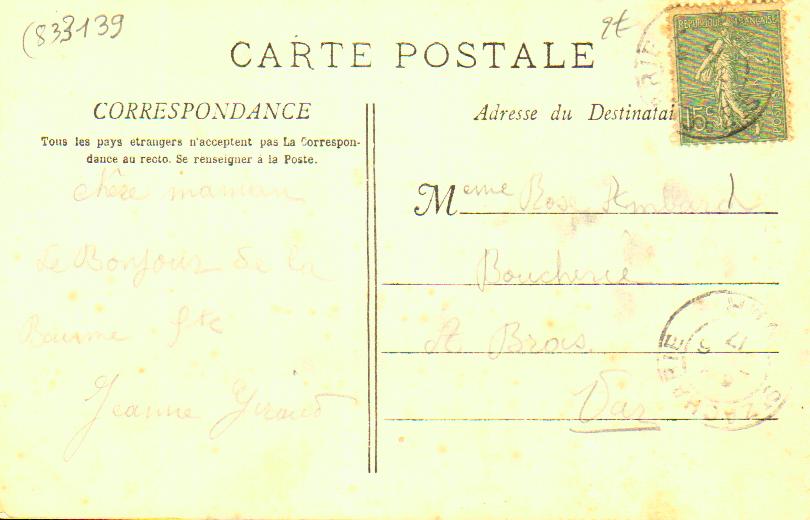 (833139
CARTE POSTALE
RÉPUBLIQUE FRANÇAISE
15c
POSTES
CORRESPONDANCE
Tous les pays etrangers n'acceptent pas La Correspon-
dance au recto. Se renseigner à la Poste.
chère maman
Le Bonjour de la
Baume Ste
Jeanne Giraud
Adresse du Destinatai
Meme Rose
Boucherie
A Bras
Var